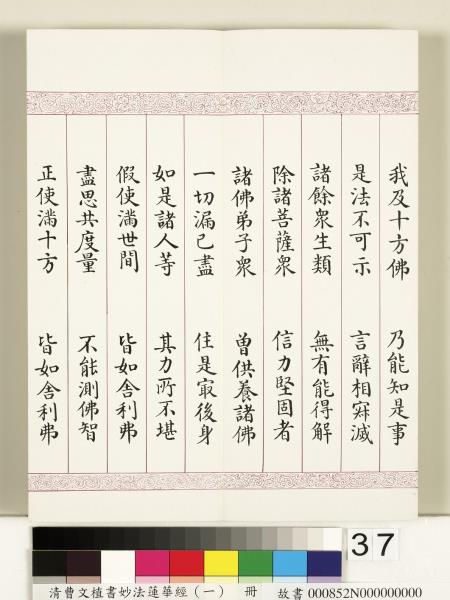 我及十方佛　乃能知是事
是法不可示　言辭相寂滅
諸餘衆生類　無有能得解
除諸菩薩衆　信力堅固者
諸佛弟子衆　曾供養諸佛
一切漏已盡　住是㝡後身
如是諸人等　其力所不堪
假使滿世間　皆如舍利弗
盡思共度量　不能測佛智
正使滿十方　皆如舍利弗
37
清曹文植書妙法蓮華經（一）　冊　故書 000852N000000000